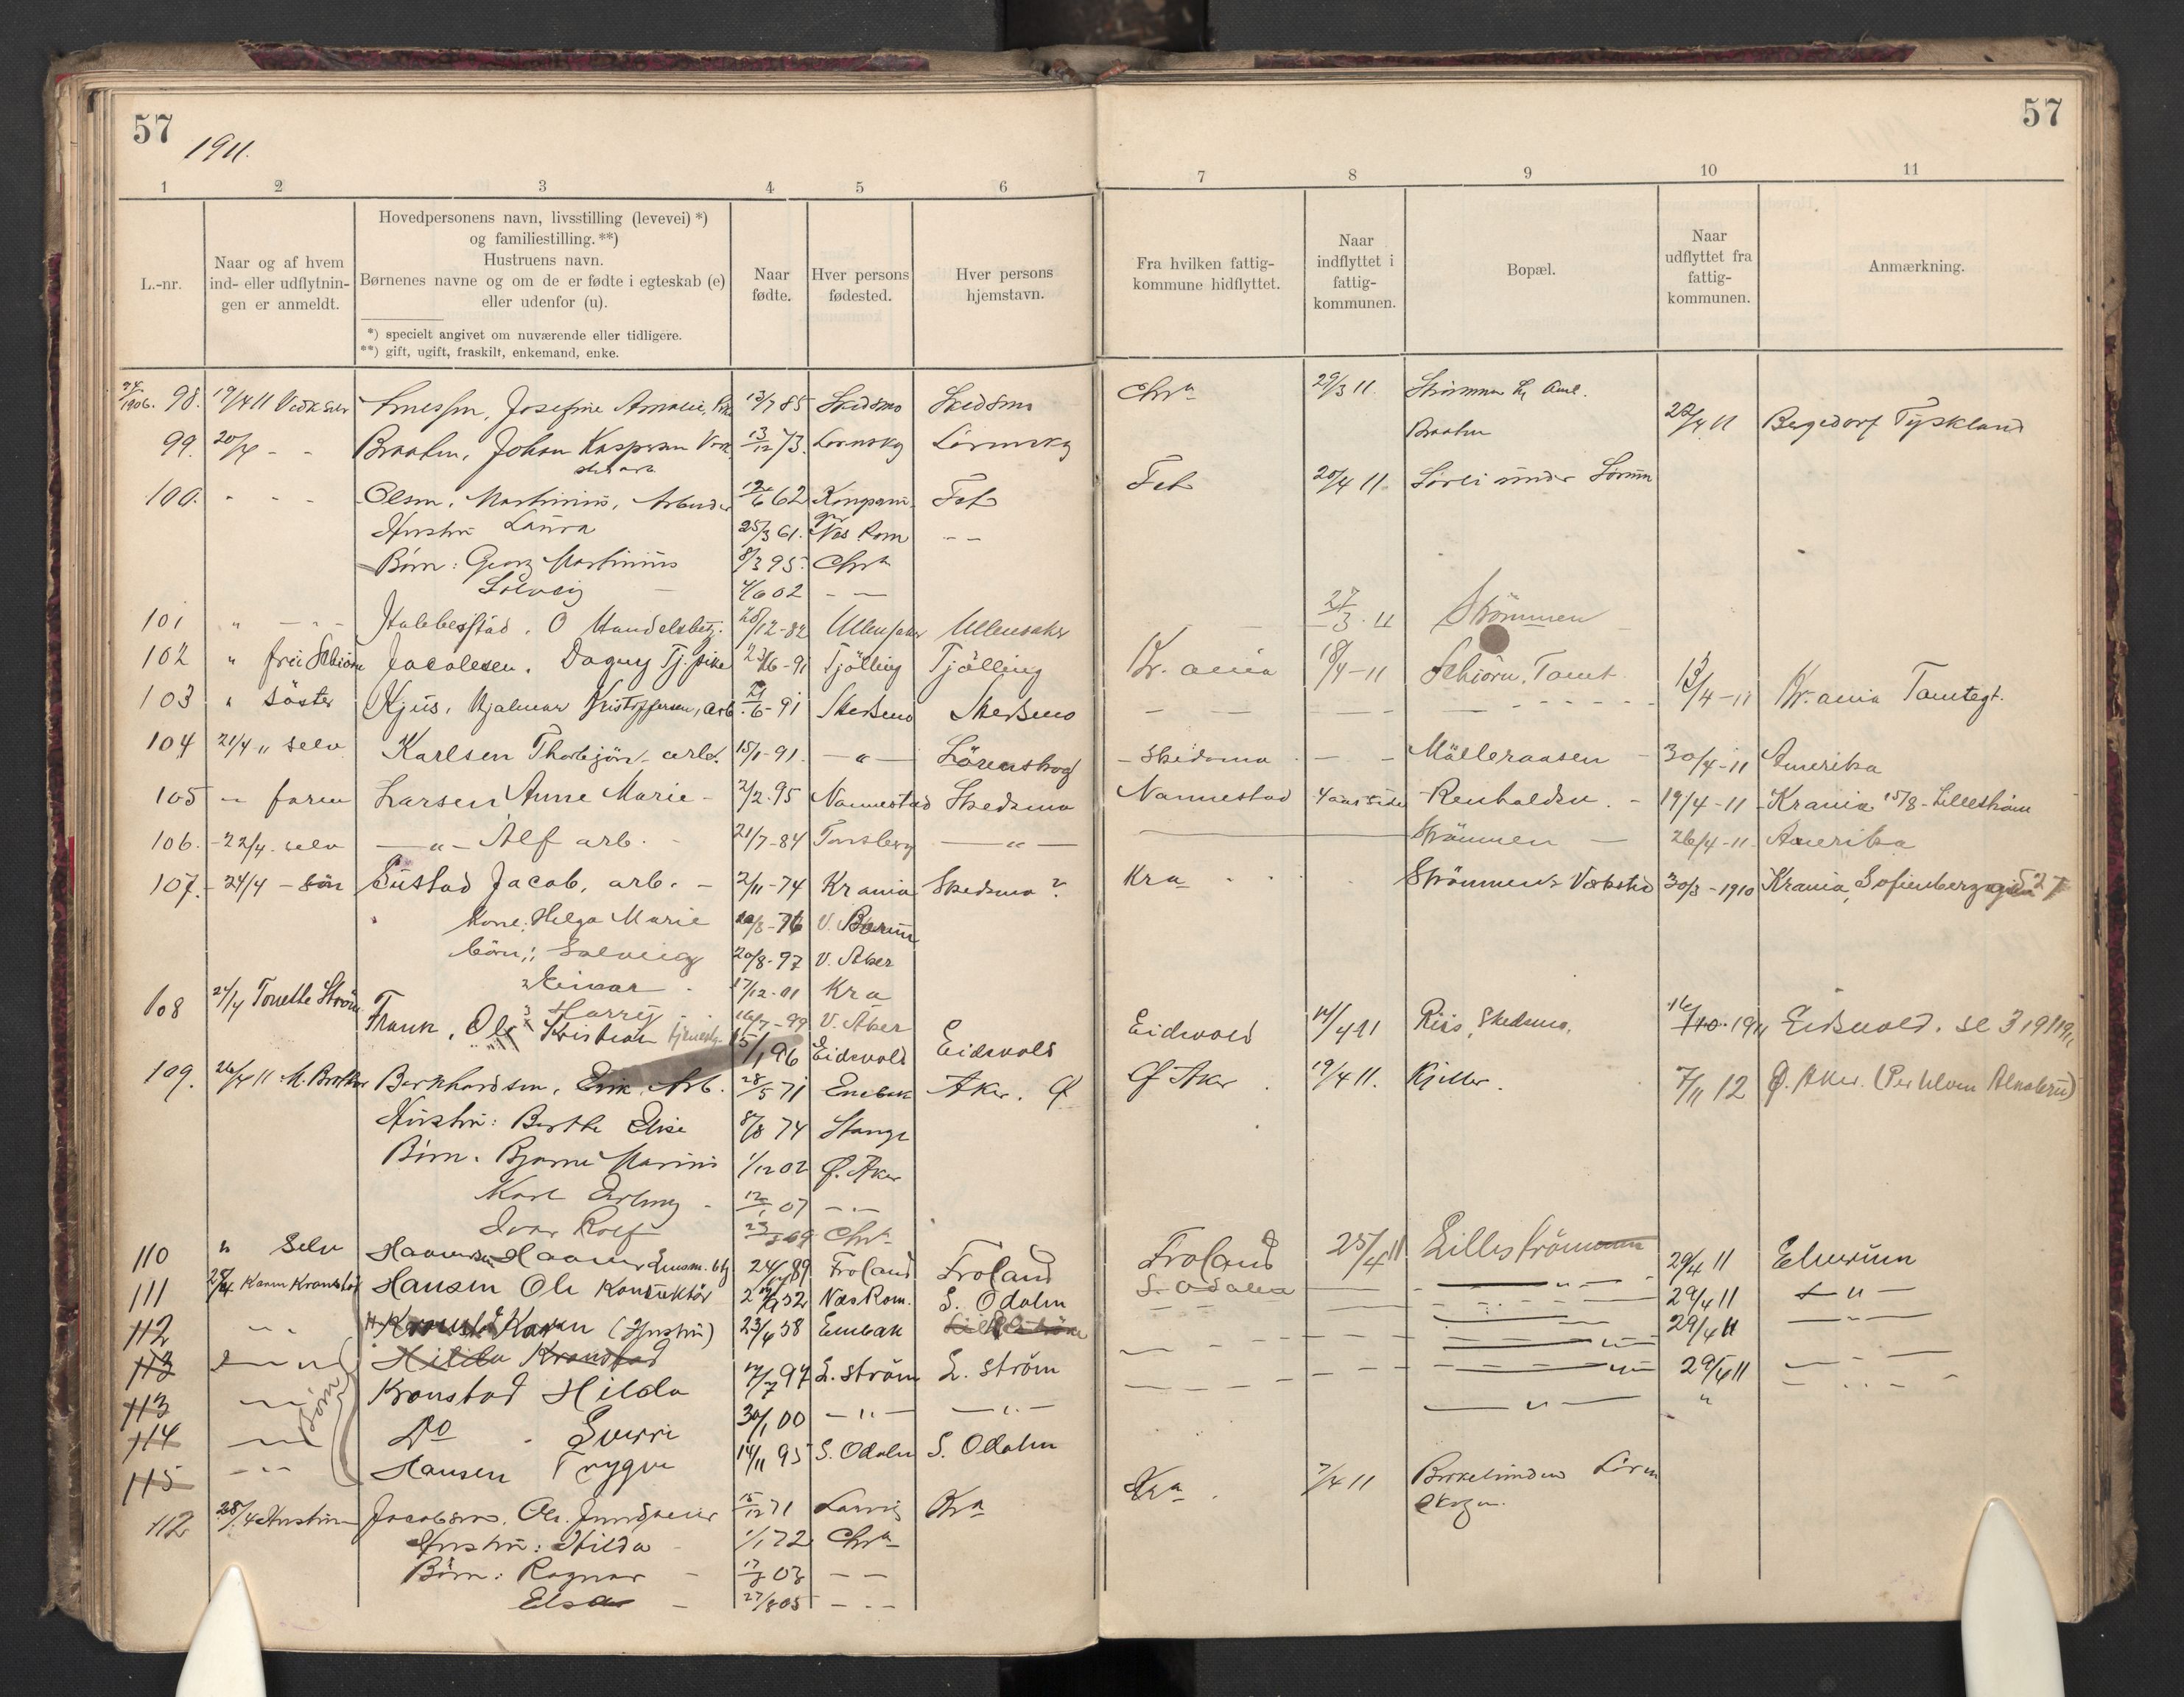 57
1911.
57
1 2 3 4 5 6 7 8 9 10 11
L.-nr.
Naar og af hvem
ind- eller udflytnin-
gen er anmeldt.
Hovedpersonens navn, livsstilling (levevei) *)
og familiestilling. **)
Hustruens navn.
Børnenes navne og om de er fødte i egteskab (e)
eller udenfor (u).
*) specielt angivet om nuværende eller tidligere.
**) gift, ugift, fraskilt, enkemand, enke.
Naar
fødte.
Hver persons
fødested.
Hver persons
hjemstavn.
Fra hvilken fattig-
kommune hidflyttet.
Naar
indflyttet i
fattig-
kommunen.
Bopæl.
Naar
udflyttet fra
fattig-
kommunen.
Anmærkning.
1906. 98. 19/4 11 Josefine Amalie, 13/7 85 Skedsmo Skedsmo Chra 29/3 11.
99. 20/4 - - Braaten, Johan Kaspersen 13/12 73. Lørnskog Lørnskog Braaten 22/4 11 Bergedorf Tyskland
100. - - - Olsen, Martinius, Arbeider 12/6 62 Fet Fet 20/4 11. Sørli under Sørum
Hustru Laura 25/3 61. Nes Rom - -
Børn: Georg Martinius 8/3 95. Chra
Solveig 4/6 02 - -
101 " - - - O Handelsbetj. 28/12-82 Ullensaker Ullensaker 27/3.11 Strömmen
102 " Jacobsen. Dagny Tj.pike 23/6-91 Tjölling Tjölling Kr.ania 18/4-11 Schiörn, Tomt.
103 " Söster Kjus, Hjalmar Kristoffersen, arb. 21/6-91 Skedsmo Skedsmo - - - - 13/4-11 Kr.ania Tomtegt.
104 21/4 " selv Karlsen Thorbjörn - arb. 15/1-91. - " - Lörenskog - Skedsmo - - Mölleraasen - 30/4-11 Amerika
105 - " faren Larsen Anne Marie - 2/2.95 Nannestad Skedsmo Nannestad 4 aar siden Renholdsn. - 19/4-11 Krania 15/8 - Lilleström
106. - 22/4. selv - " - Alf arb. - 21/7-84 Tønsberg - " - Strömmen - 26/4-11. Amerika
107. - 24/4 - sön Gustad Jacob, arb. - 2/11-74 Krania Skedsmo? Kra Strömmens Værksted 30/3-1910 Krania, Sofienberggaden 27
Kone: Helga Marie 20/8-76 V. Bærum
börn: Solveig 20/8-97 V. Aker
2 Einar - 17/12-01 Kra
3 Harry - 16/7-99 V. Aker
108 24/4 Tonette Ström Frank, Ole Kristian 15/1 96 Eidsvold Eidsvold Eidsvold 14/4 11 Riis, Skedsmo. 16/10 1911 Eidsvold. se 319
109. 26/4 11 M. Braathen Bernhardsen, Erik, Arb. 28/5 71 Enebak Aker. Ø Ø Aker 19/4 11. Kjeller. 7/11 12 Ø. Aker.
Hustru: Berthe Elise 8/8 74 Stange
Børn. Bjarne Marius 1/12 02 Ø. Aker
Karl Erling - 12/1 07 - " -
Ivar Rolf 23/3 09 Chra
110 " Selv 24/ 89 Froland Froland Froland 25/4 11 Lilleström 29/4 11 Elverum
111 28/4 Karen Kronstad Hansen Ole Konduktör 52 Næs Rom. S. Odalen S. Odalen - " - 29/4 11 - " -
112 - " Karen (Hustru) 23/4 58 Enebak 29/4 11 - " -
113 - " Hilda Kronstad
113 - " Kronstad Hilda 7/7 97 L. ström L. ström 29/4 11 - " -
114 - " Børn Do - Sverre 30/1 00 - " - - " - - " - "
115 - " Hansen Trygve 14/11 95 S. Odalen S. Odalen
112 28/4 Hustruen Jacobsen, Ole. 15/12 71 Larvig Kra Kra. 7/4 11 Birkelunden Lørenskogen.
Hustru: Hilda - 1/1 72 Chra
Børn: Ragnar - 17/3 03 - -
Elsa - 27/8 05 - " -